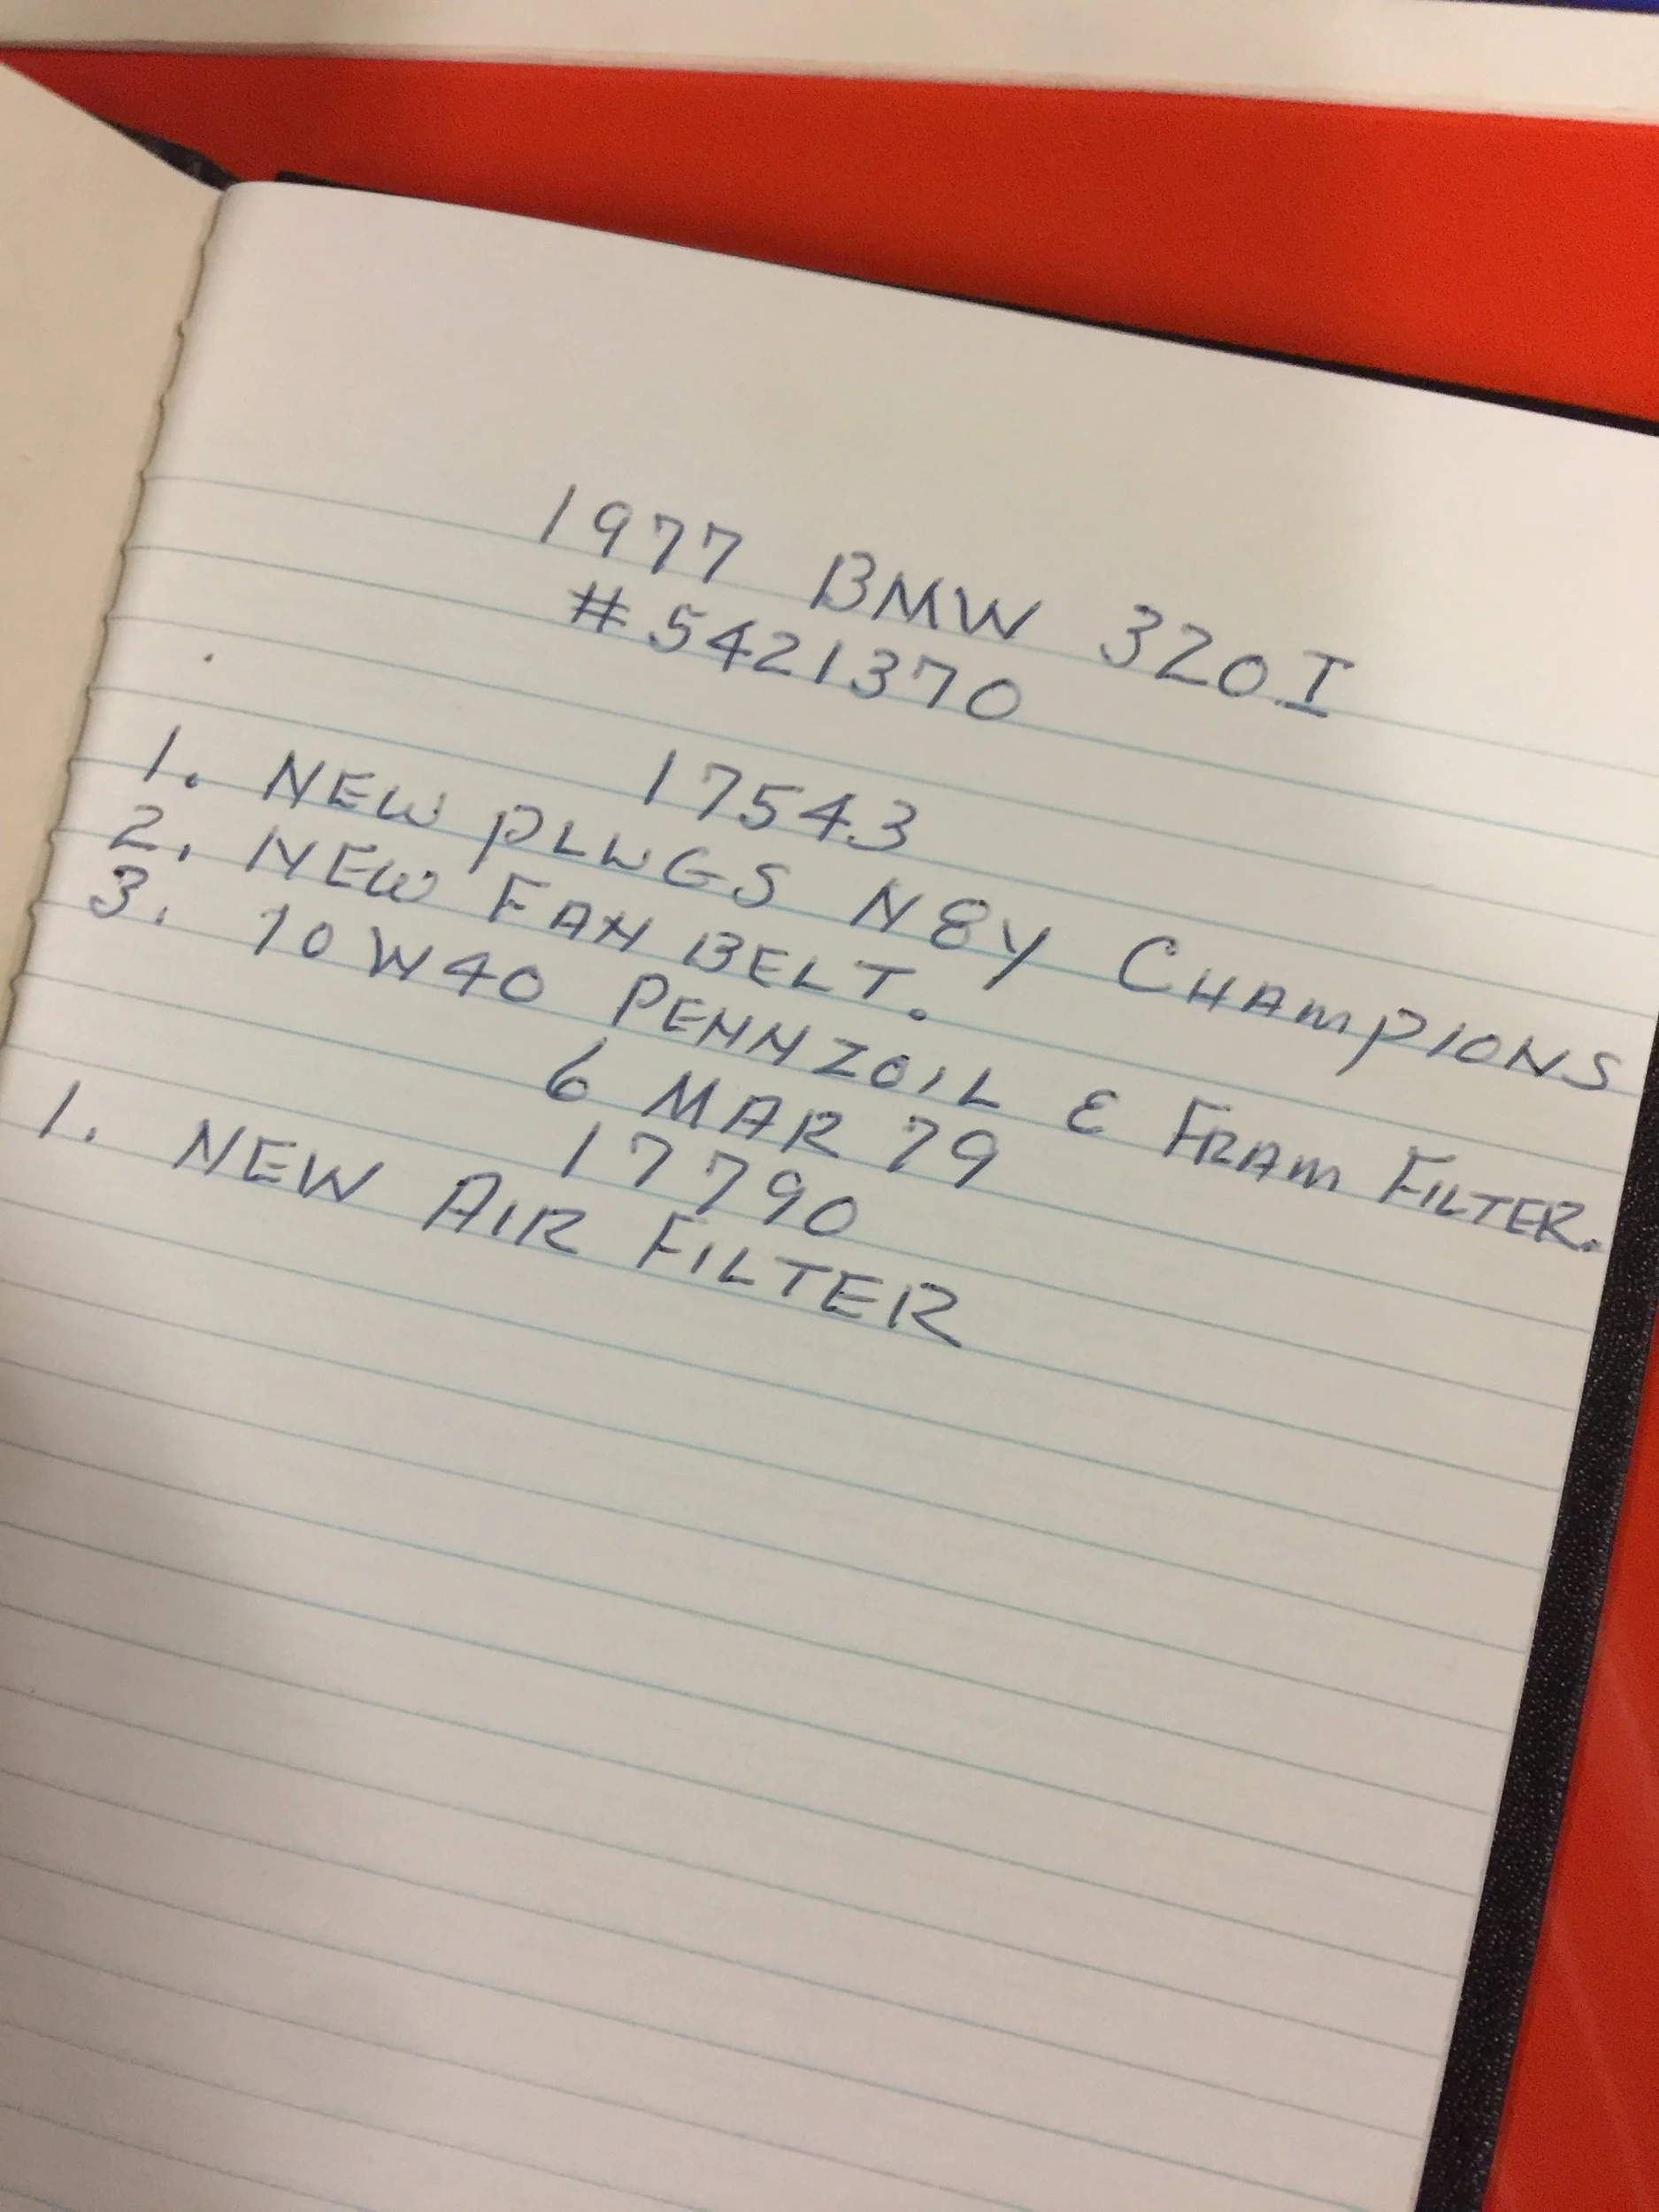 1977 BMW 320I
#5421370
17543
1. NEW PLUGS N8Y CHAMPIONS
2. NEW FAN BELT.
3. 10W40 PENNZOIL & FRAM FILTER.
6 MAR 79
17790
1. NEW AIR FILTER